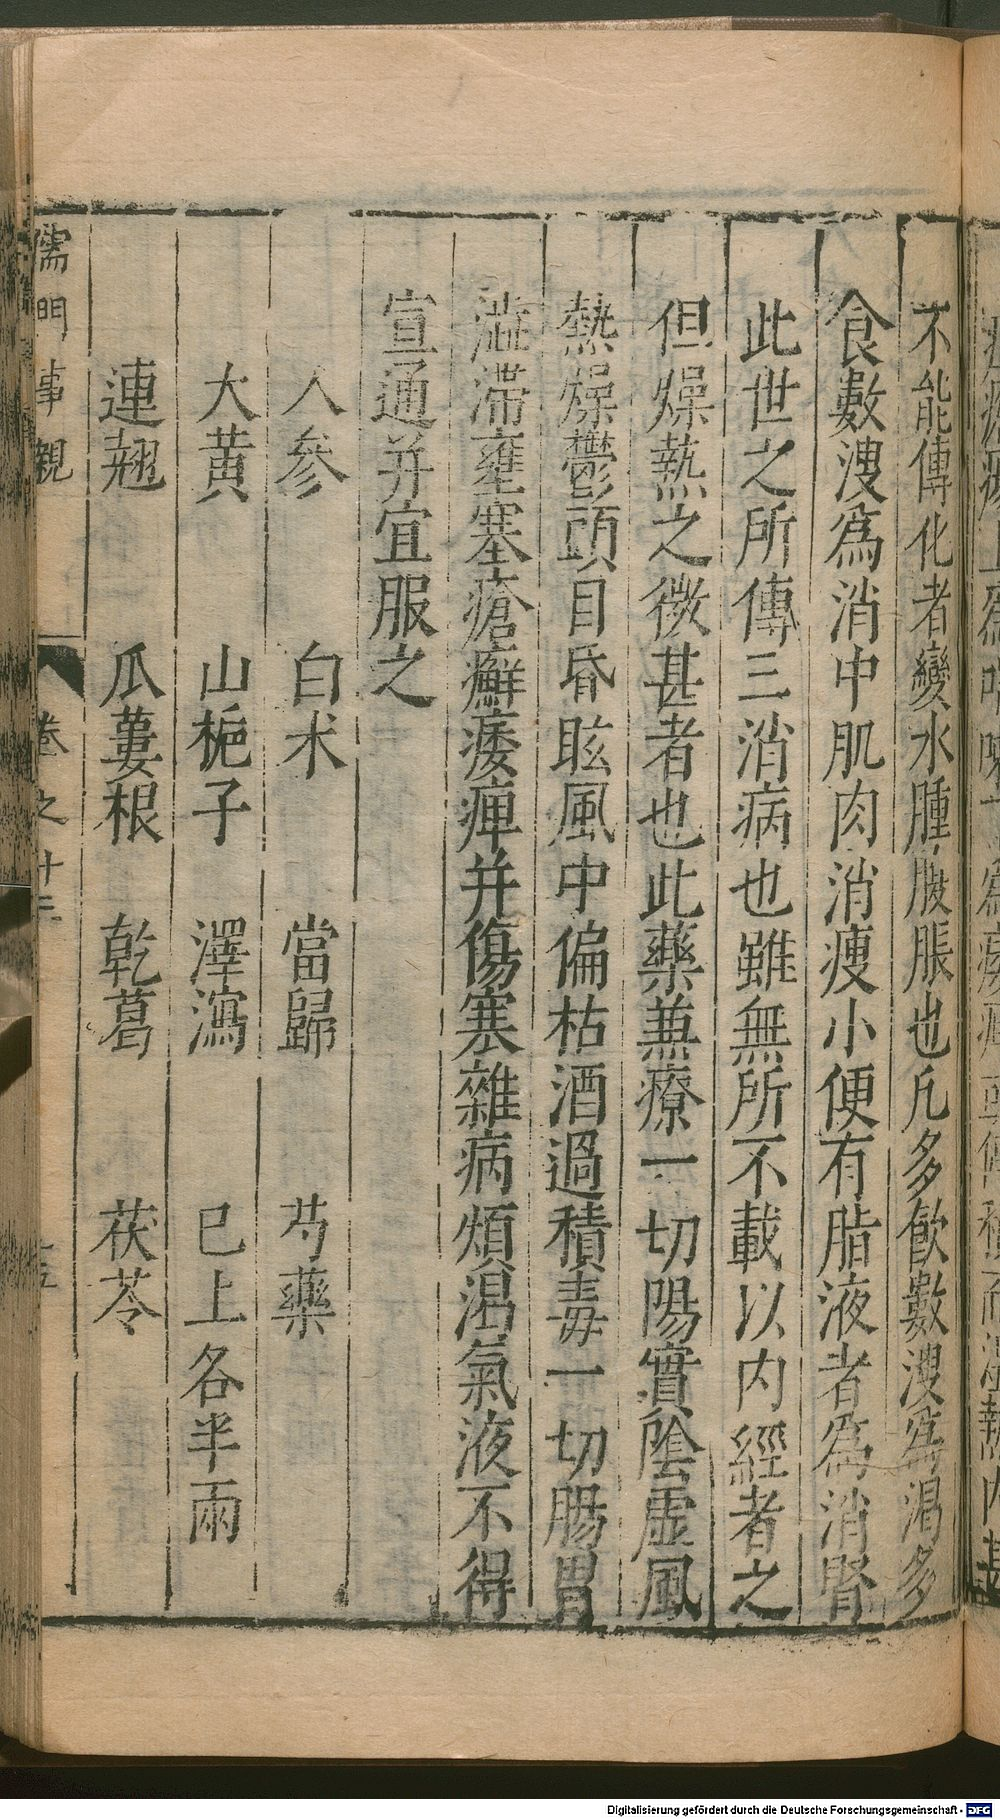 不能傳化者變水腫腹脹也凡多飲數溲爲渴多
食數溲爲消中肌肉消瘦小便有脂液者爲消腎
此世之所傳三消病也雖無所不載以内經者之
但燥熱之微甚者也此藥兼療一切陽實陰虛風
熱燥鬱頭目昏眩風中偏枯酒過積毒一切腸胃
澁滯壅塞瘡癬痿痺并傷寒雜病煩渴氣液不得
宣通并宜服之
人參 白术 當歸 芍藥
大黃 山梔子 澤瀉 已上各半兩
連翹 瓜蔞根 乾葛 茯苓
儒門事親 卷之十三
Digitalisierung gefördert durch die Deutsche Forschungsgemeinschaft - DFG